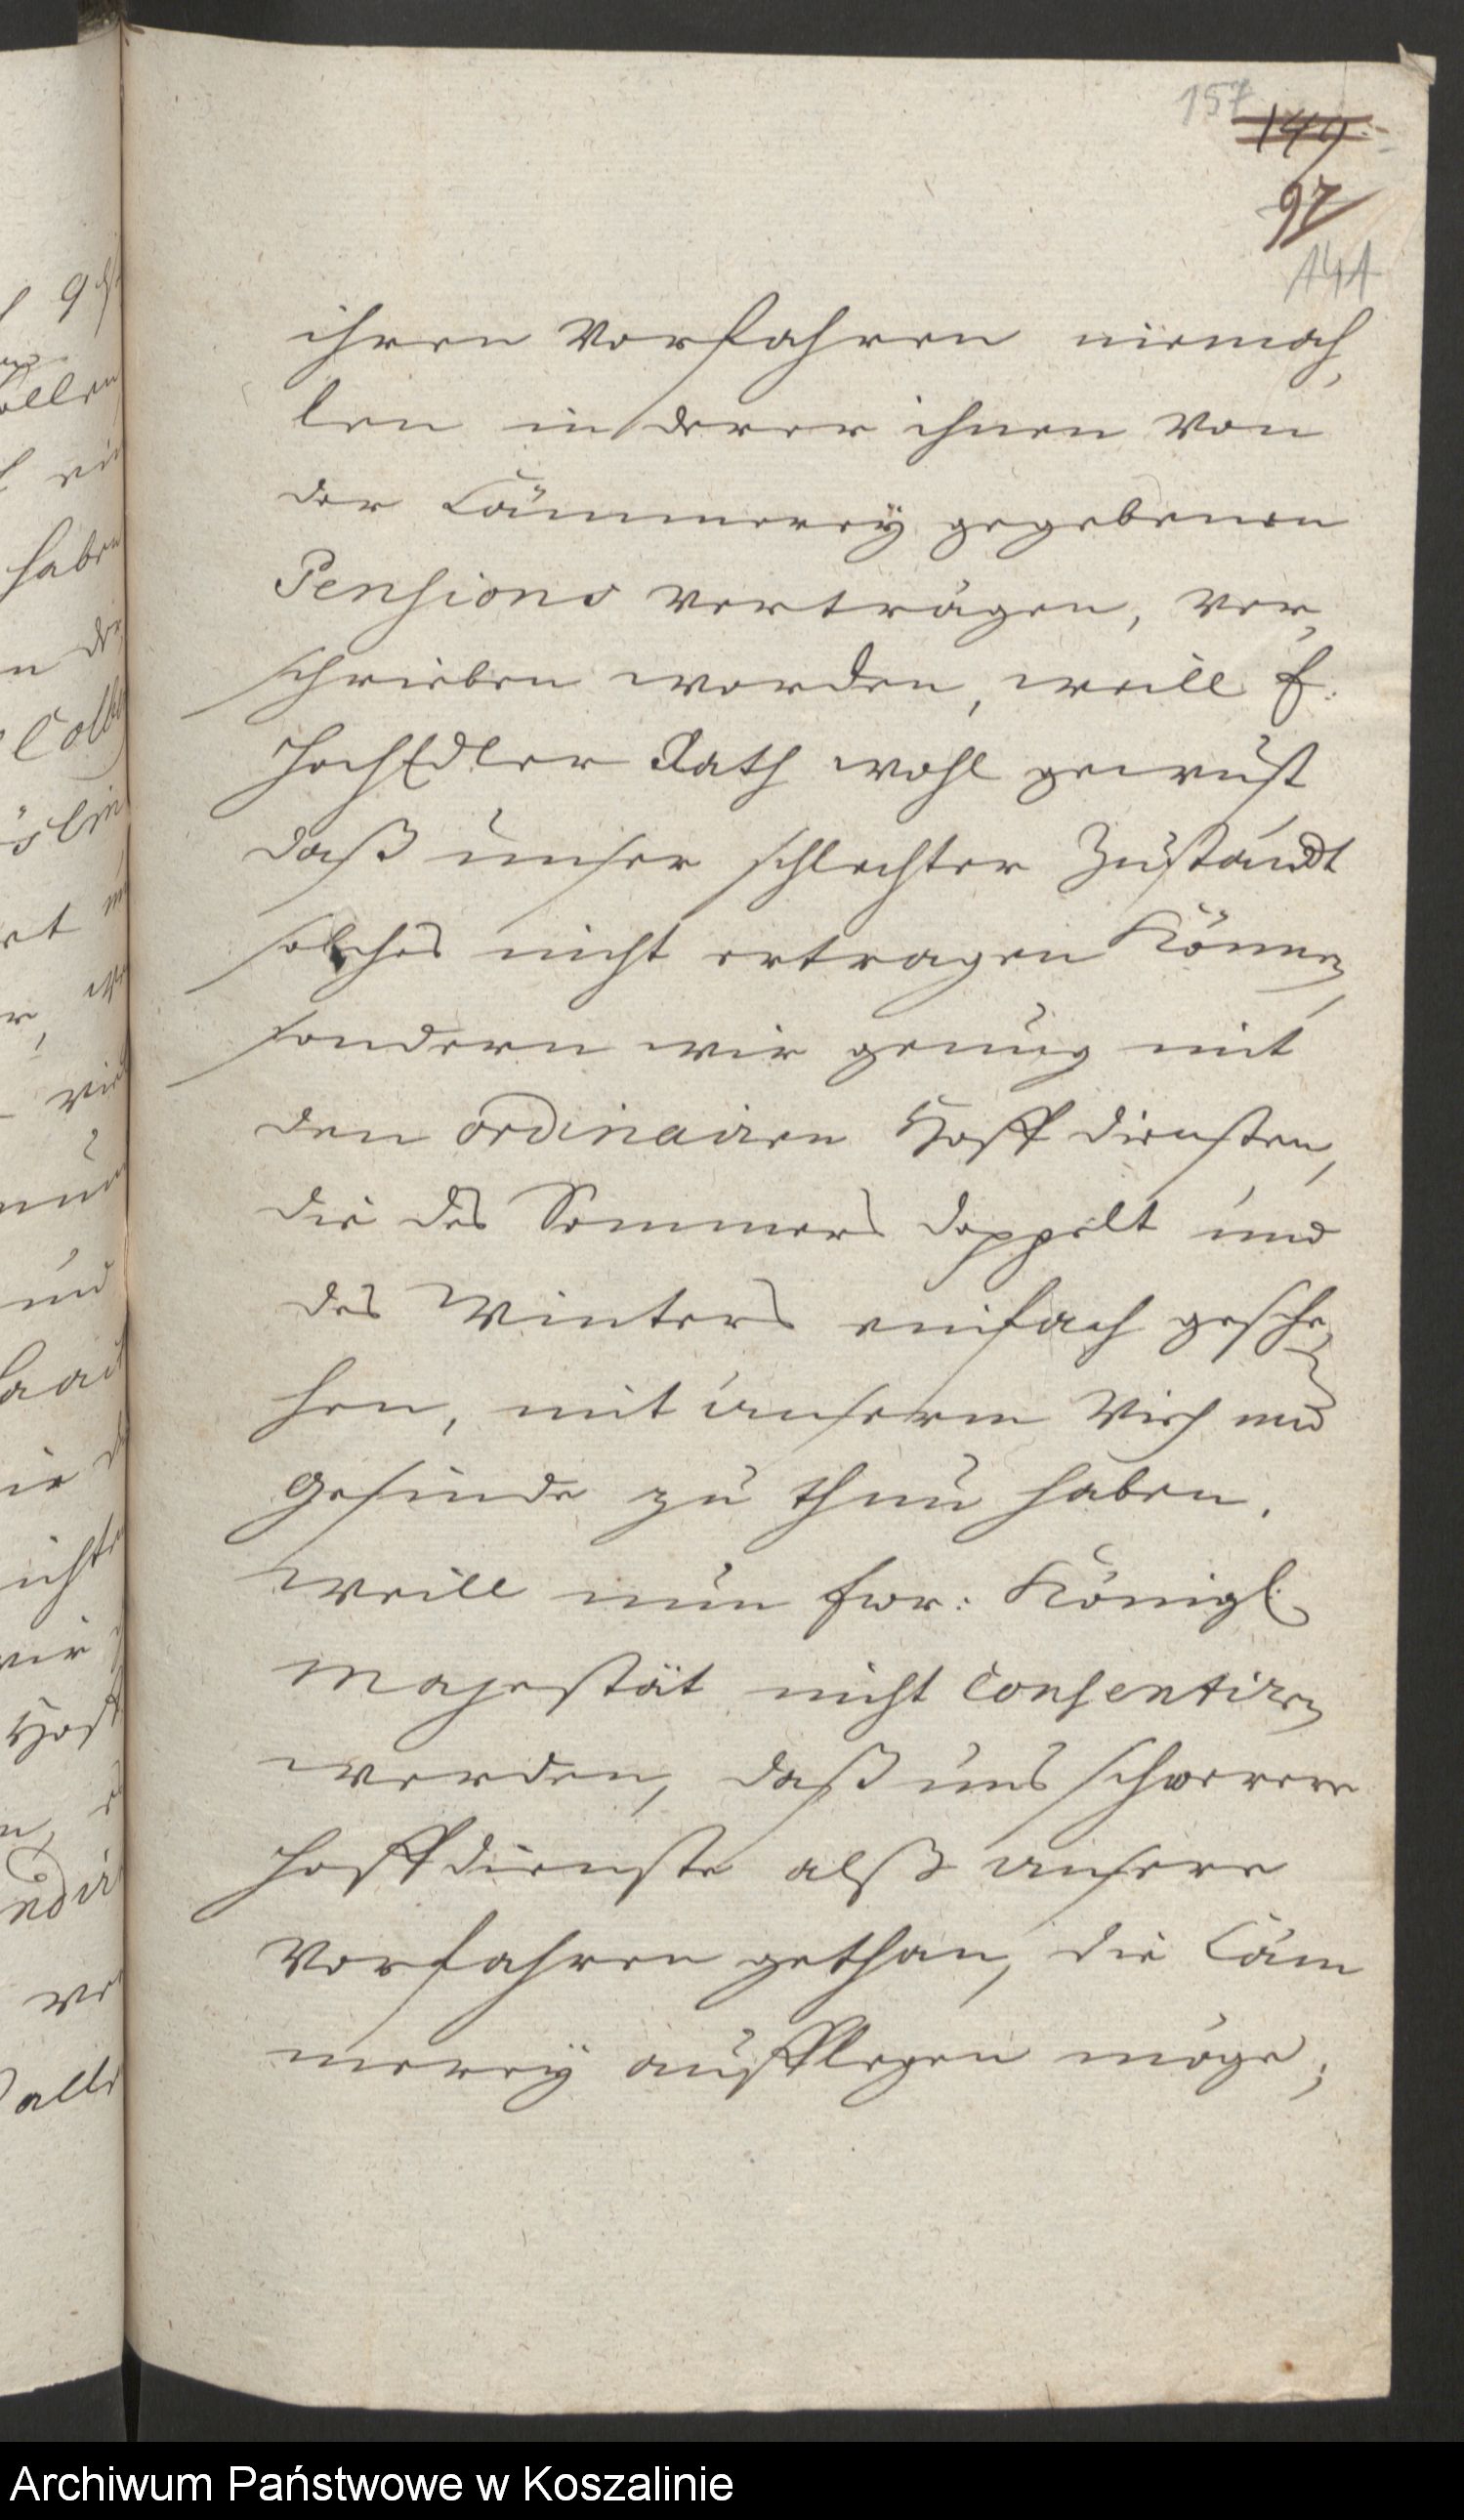 157
149.
97
141
ihren Vorfahren niemah,
len in derer ihnen von
der Cämmerey gegebenen
Pensions verträgen, ver,
schrieben worden, weill E:
HochEdler Rath wohl gewust
daß unser schlechter Zustandt
solches nicht ertragen könne,
sondern wir genung mit
den ordinairen Hoff diensten,
die des Sommers doppelt und
des Winters einfach gesche,
hen, mit unserm Vieh und
Gesinde zu thun haben.
Weill nun Ewr: Königl.
Majestät nicht consentiren
werden, daß uns schwerere
Hoffdienste alß unsere
Vorfahren gethan, die Cäm
merey aufflegen möge;
Archiwum Państwowe w Koszalinie